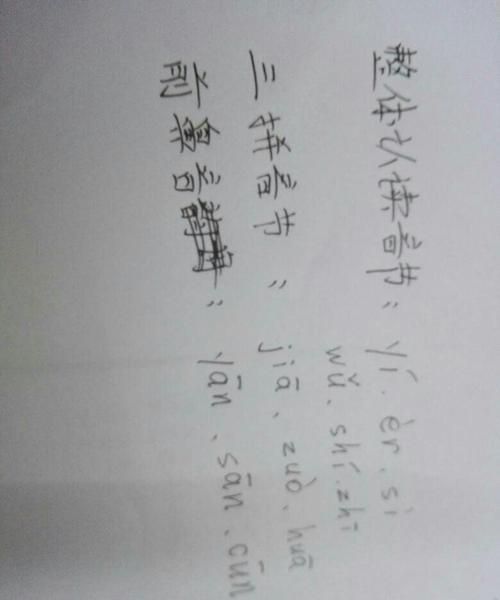 整体认读音节：yí.èr.sì
wǔ.shí.zhī
三拼音节：jiā、zuò、huā
前鼻音：yān、sān、cūn